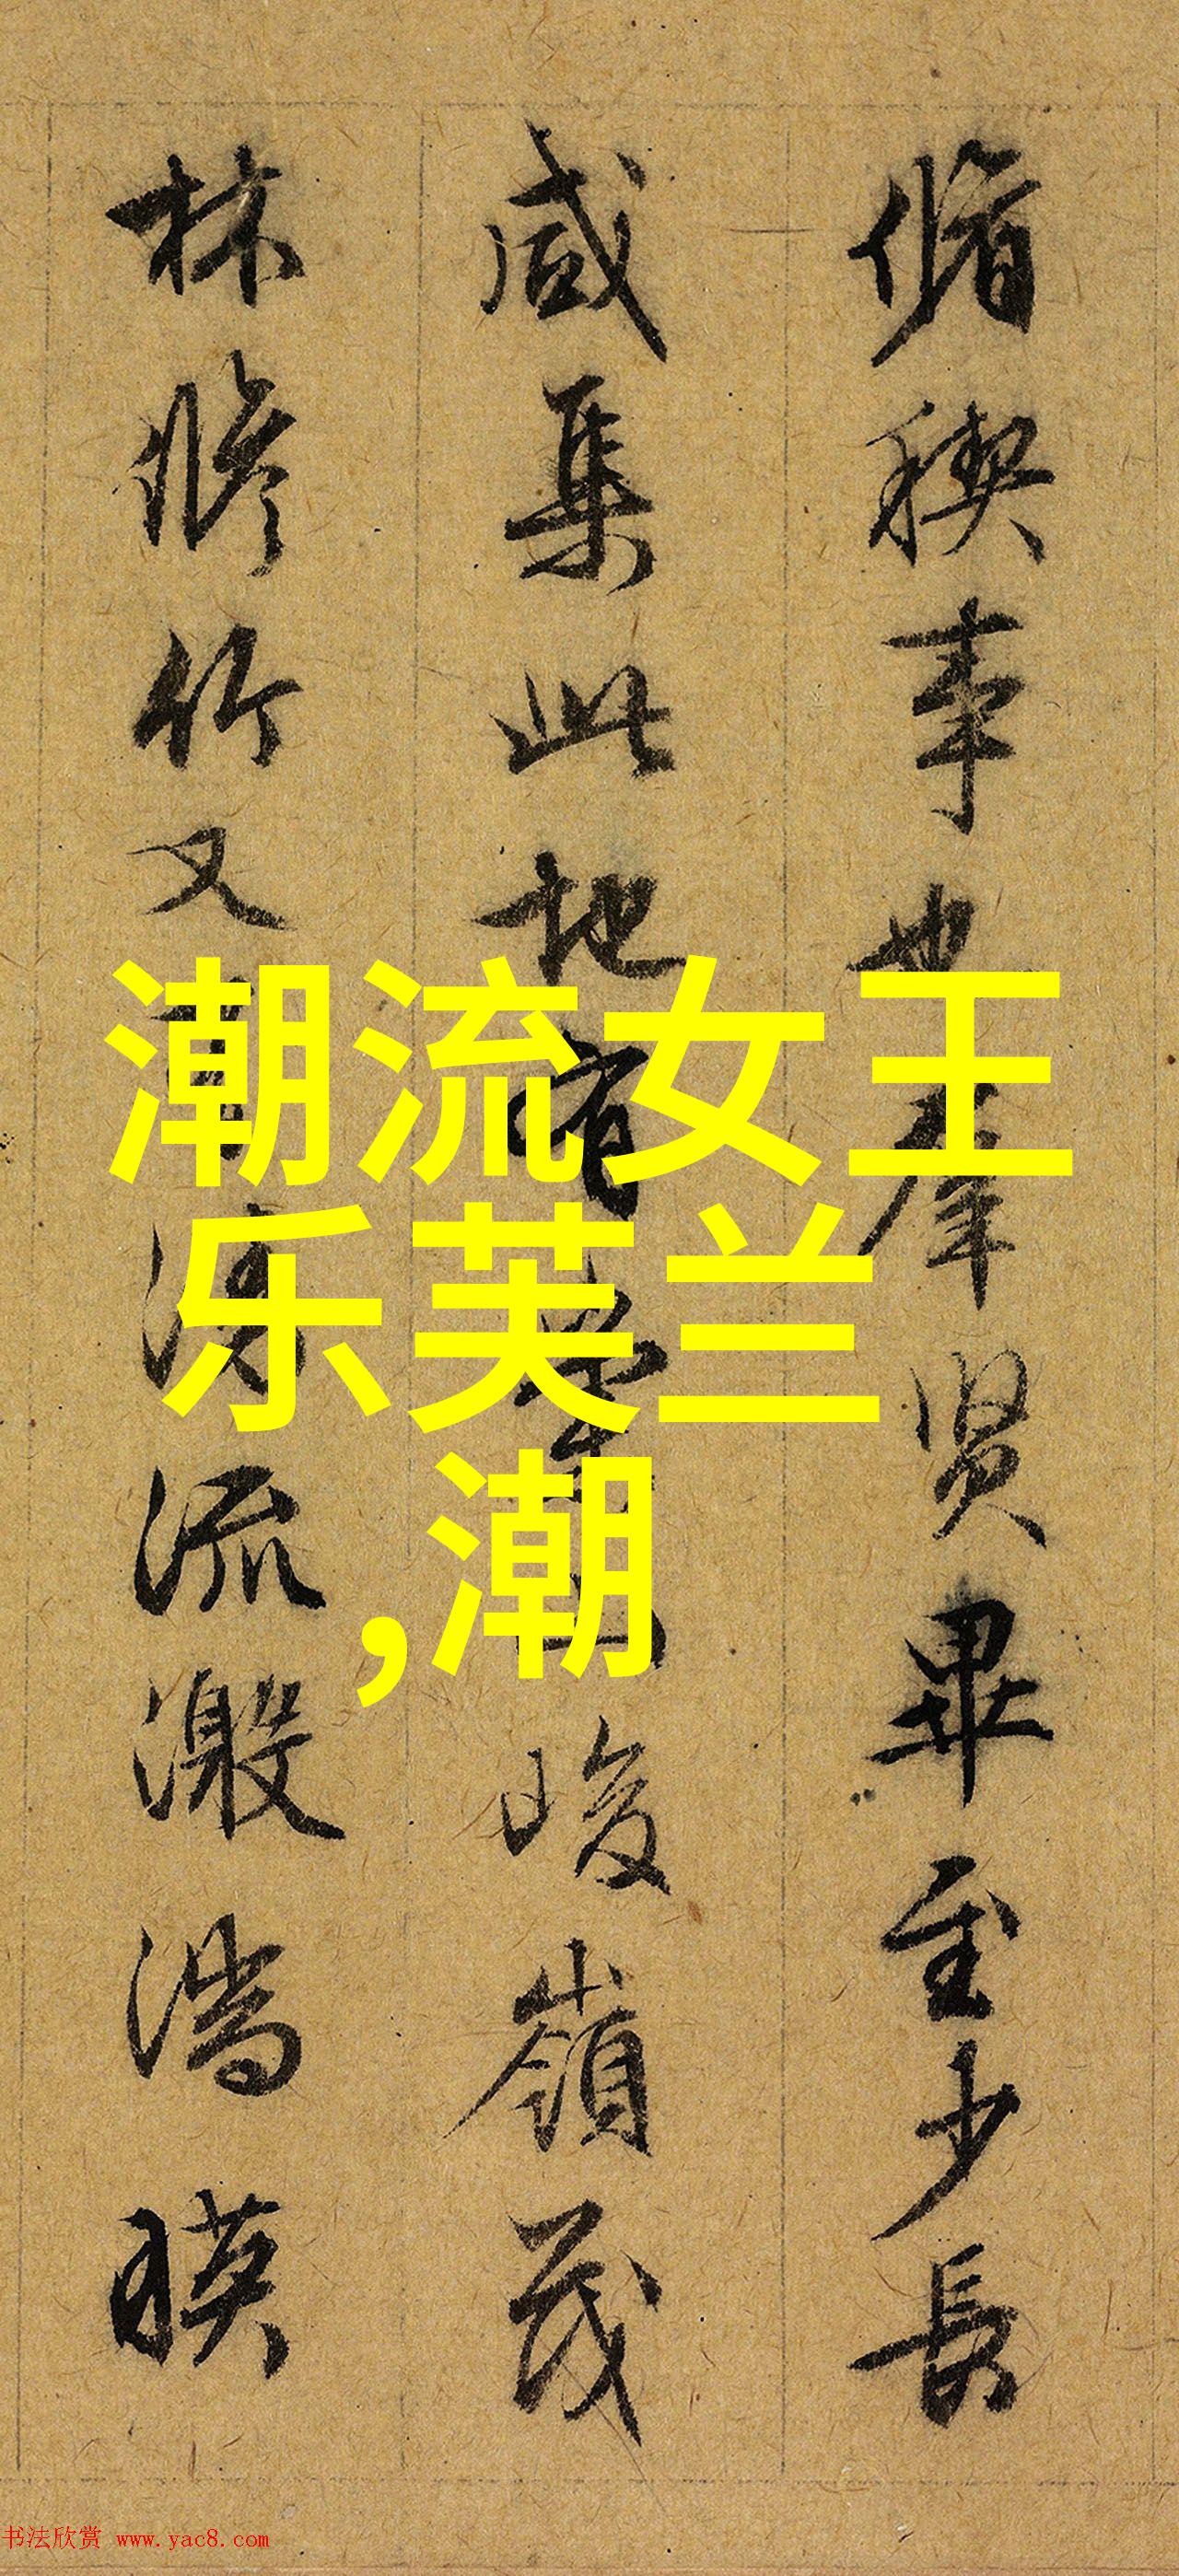 脩稧事也羣賢畢至少長
咸集此地有崇山峻嶺茂
林脩竹又有清流激湍暎
潮流女王
乐芙兰
,潮
书法欣赏 www.yac8.com